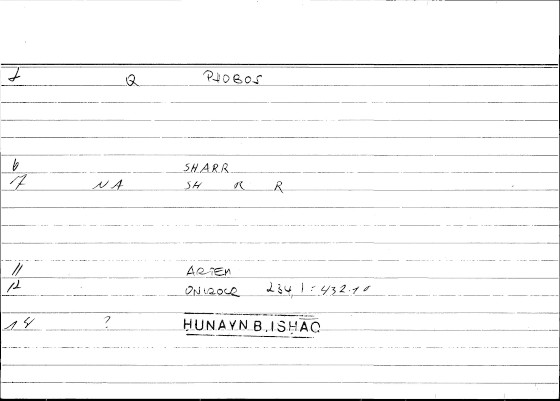 1 Q PHOBOS
6 SHARR
7 NA SH R R
11 ARTEM
12 ONIROCR 234,1:432.10
14 ? HUNAYN B.ISHAQ